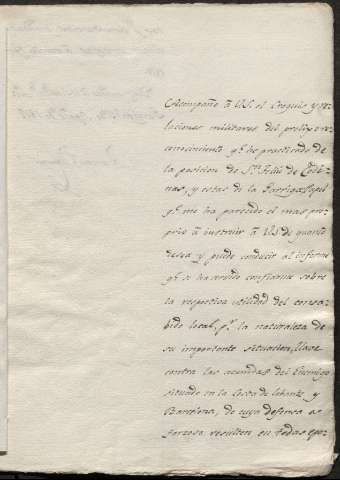 Acompaño à V.S. el Croquis y re-
laciones militares del prolixo re-
conocimiento q.e he practicado de
la posicion de S.n Feliu de Codi-
nas, y estas de la Garriga
q.e me ha parecido el mas pro-
prio à instruir à V.S. de quanto
desea y puede conducir al informe
q.e se ha servido confiarme sobre
la respectiva utilidad del consa-
bido local, p.r la naturaleza de
su importante situacion, llave
contra las avenidas del Enemigo
situado en la Costa de Levante y
Barcelona, de cuya defensa es
forzoso resulten en todas epo-